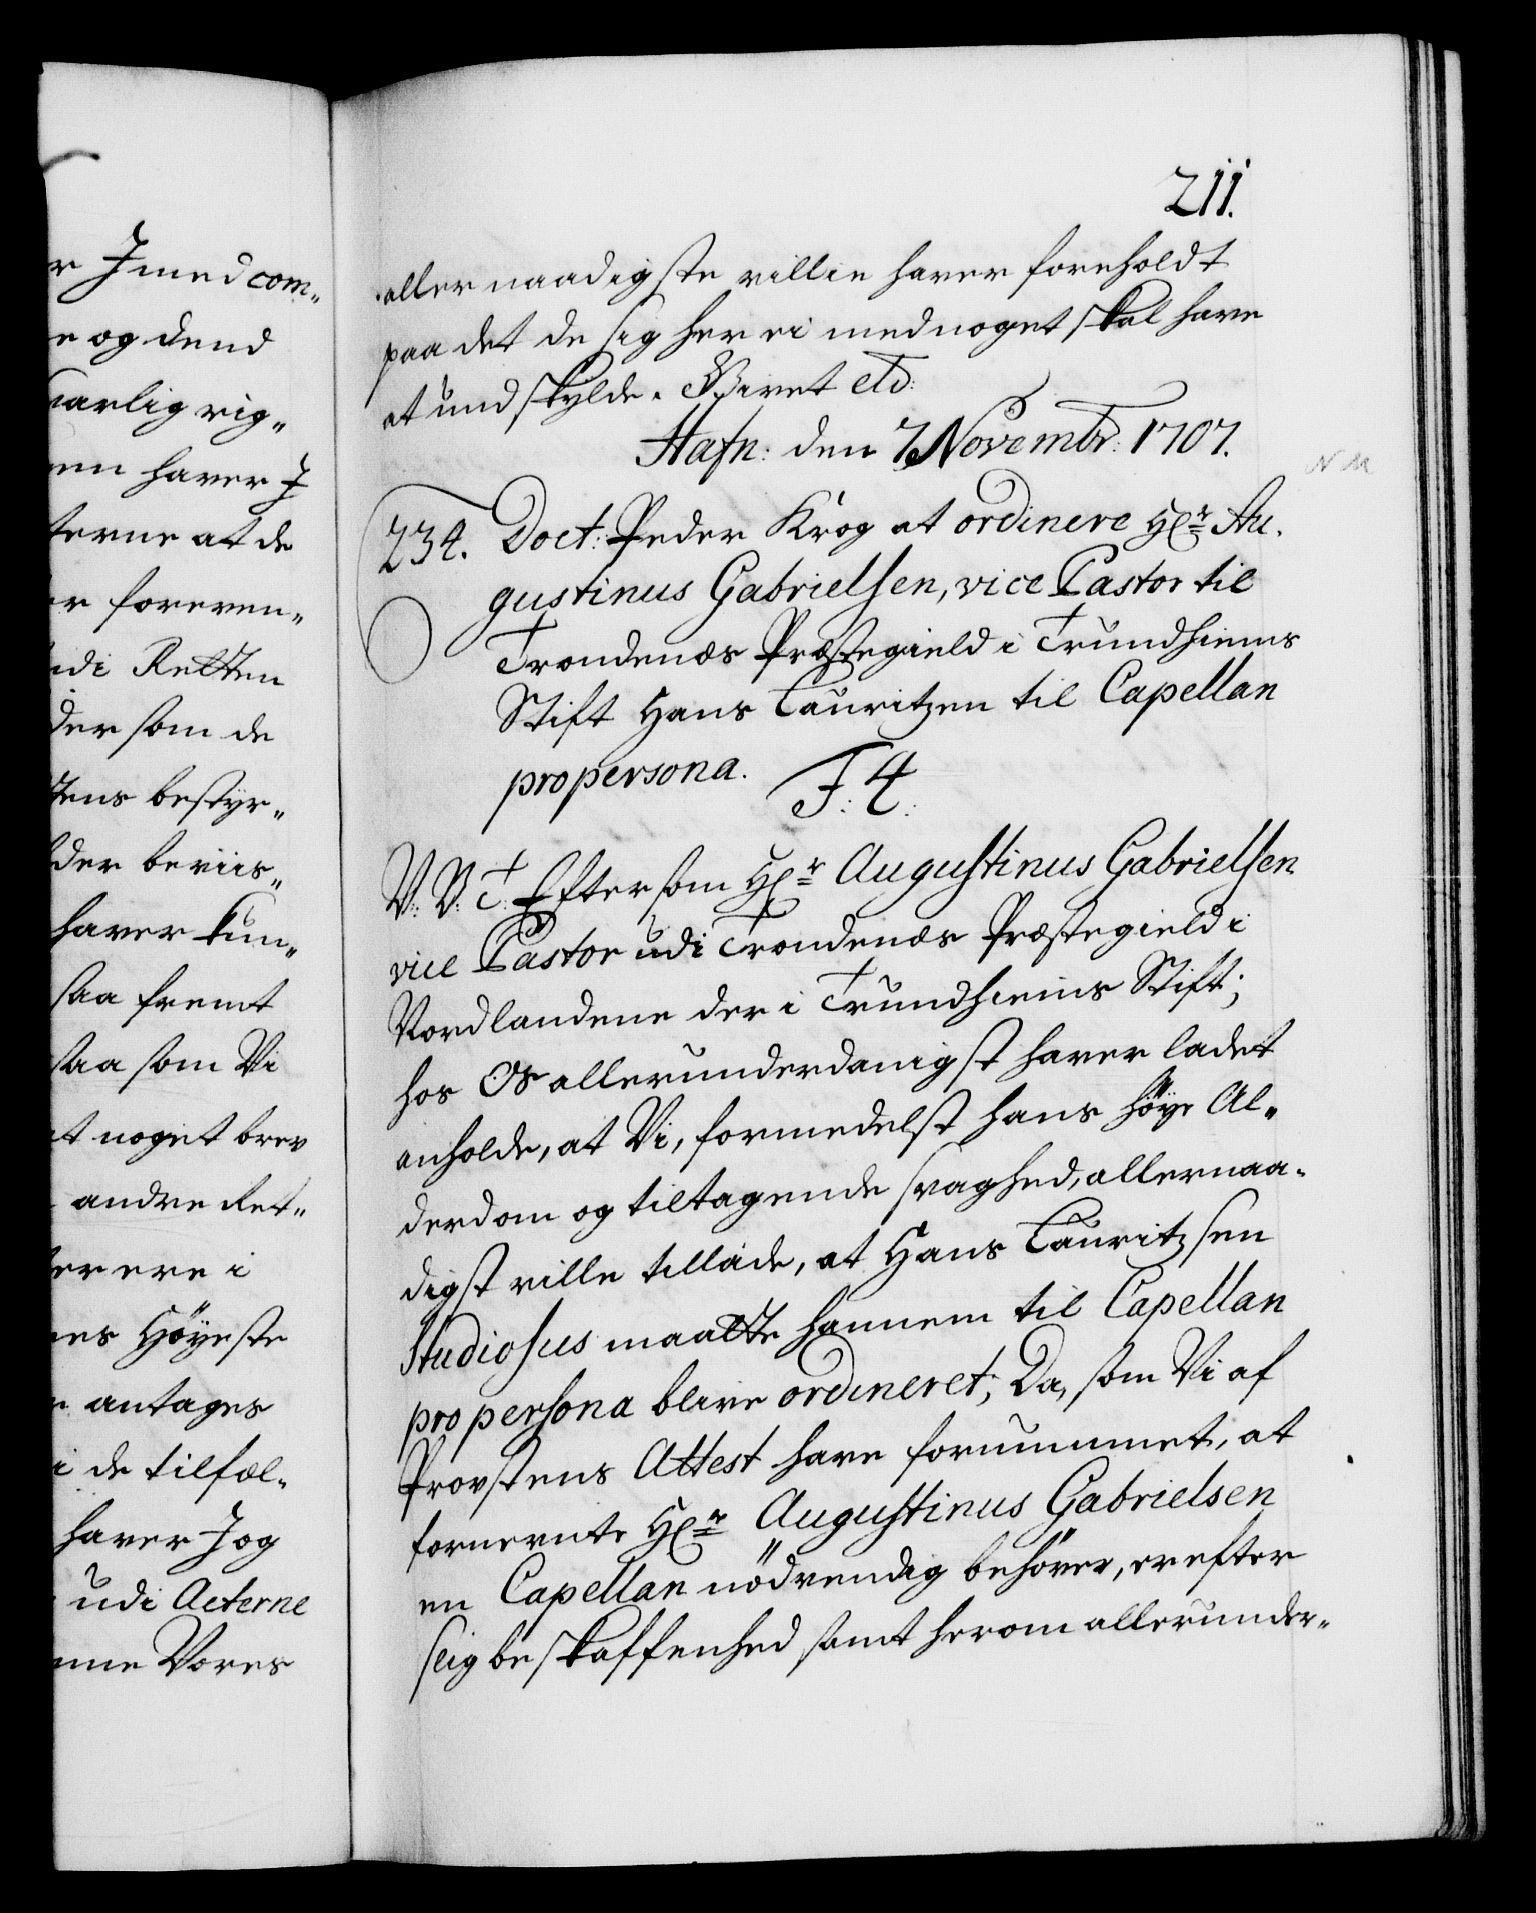 r I med com„
e og dend
narlig vig„
nen haver I
terne at de
er foreven„
udi Retten
der som de
tens bestyr„
der beviis„
haver kun„
saa fremt
saa som Vi
at noget brev
andre Ret„
ter ere i
nes Höyeste
antages
i de tilfæl„
haver I og
udi Acterne
nne Vores
211.
allernaadigste villie haver foreholdt
paa det de sig her ei med noget skal have
at undskylde. Givet etc:
Hafn: den 7 Novembr: 1707.
234. Doct: Peder Krog at ordinere Hr Au„
gustinus Gabrielsen, vice Pastor til
Trondenæs Præstegield i Trundhiems
Stift Hans Lauritzen til Capellan
pro persona.
F: 4:
V: V: T: Eftersom Hr Augustinus Gabrielsen
vice Pastor udi Trondenæs Præstegield i
Nordlandene der i Trundhiems Stift;
hos Os allerunderdanigst haver ladet
anholde, at Vi, formedelst hans höye Al„
derdom og tiltagende svaghed, allernaa„
digst ville tillade, at Hans Lauritzsen
Studiosus maatte hannem til Capellan
pro persona blive ordineret; Da, som Vi af
Provstens Attest have fornummet, at
fornevnte Hr Augustinus Gabrielsen
en Capellan nödvendig behöver, er efter
slig beskaffenhed samt herom allerunder„
N M